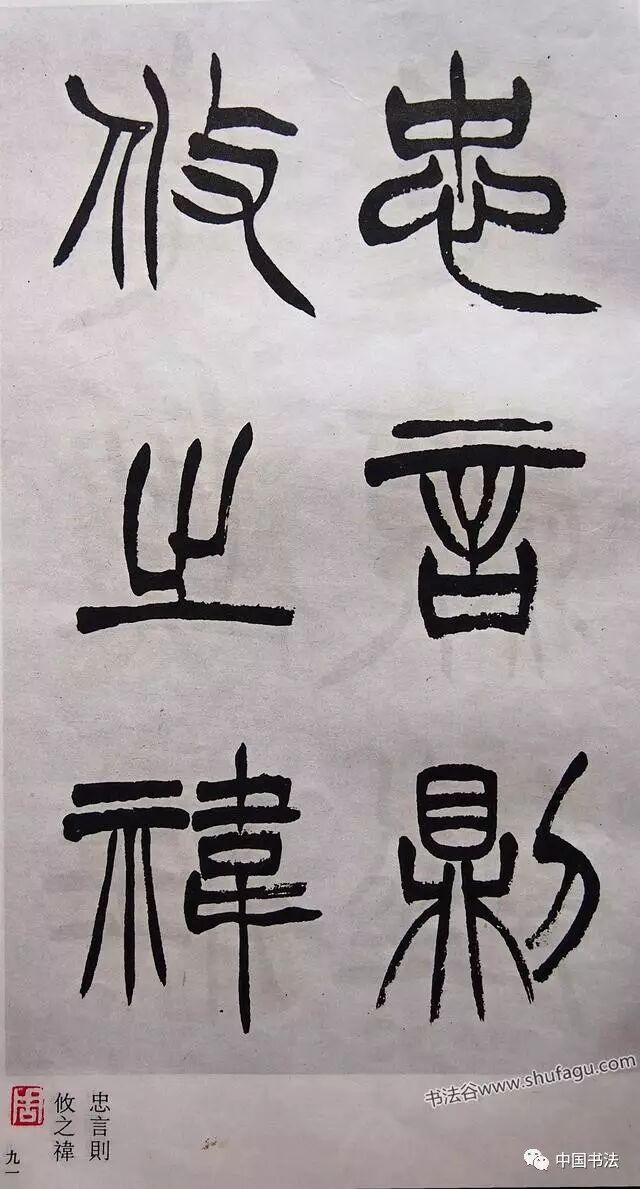 忠言則
攸之禕
忠言則
攸之禕
九一
书法谷www.shufagu.com
中国书法